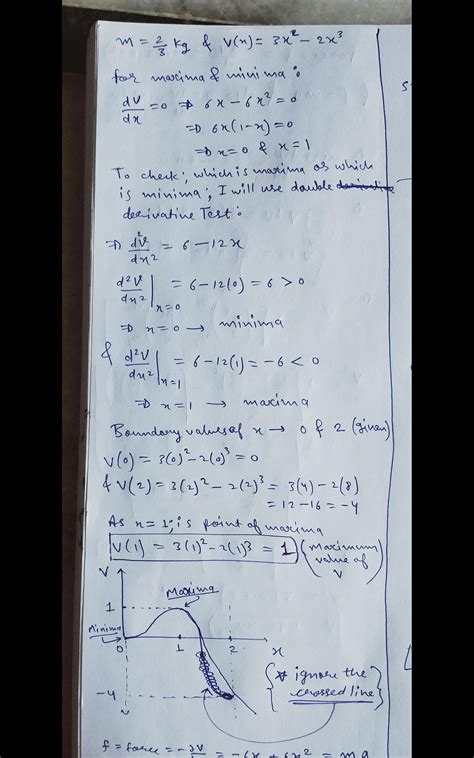 m = 2/3 kg & V(x) = 3x² - 2x³
for maxima & minima :
dV/dx = 0 ⇒ 6x - 6x² = 0
⇒ 6x(1-x) = 0
⇒ x = 0 & x = 1
To check; which is maxima or which
is minima; I will use double derivative
derivative Test:
⇒ d²V/dx² = 6 - 12x
d²V/dx² |x=0 = 6 - 12(0) = 6 > 0
⇒ x = 0 → minima
& d²V/dx² |x=1 = 6 - 12(1) = -6 < 0
⇒ x = 1 → maxima
Boundary values of x → 0 & 2 (given)
V(0) = 3(0)² - 2(0)³ = 0
& V(2) = 3(2)² - 2(2)³ = 3(4) - 2(8)
= 12 - 16 = -4
As x = 1; is point of maxima
V(1) = 3(1)² - 2(1)³ = 1 (Maximum
value of
V)
V
Maxima
1
Minima
0 1 2 x
-4
ignore the
crossed line
f = force = -dV/dx = -6x + 6x² = ma